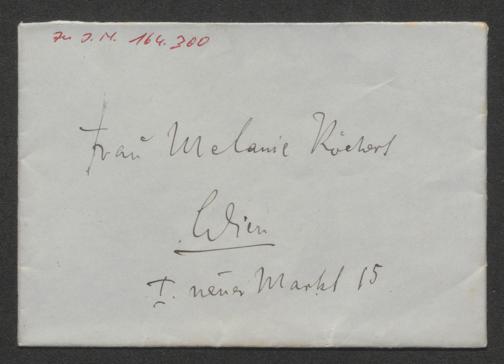 Zu I.N. 164.300
Frau Melanie Köchert
Wien
I. neuer Markt 15